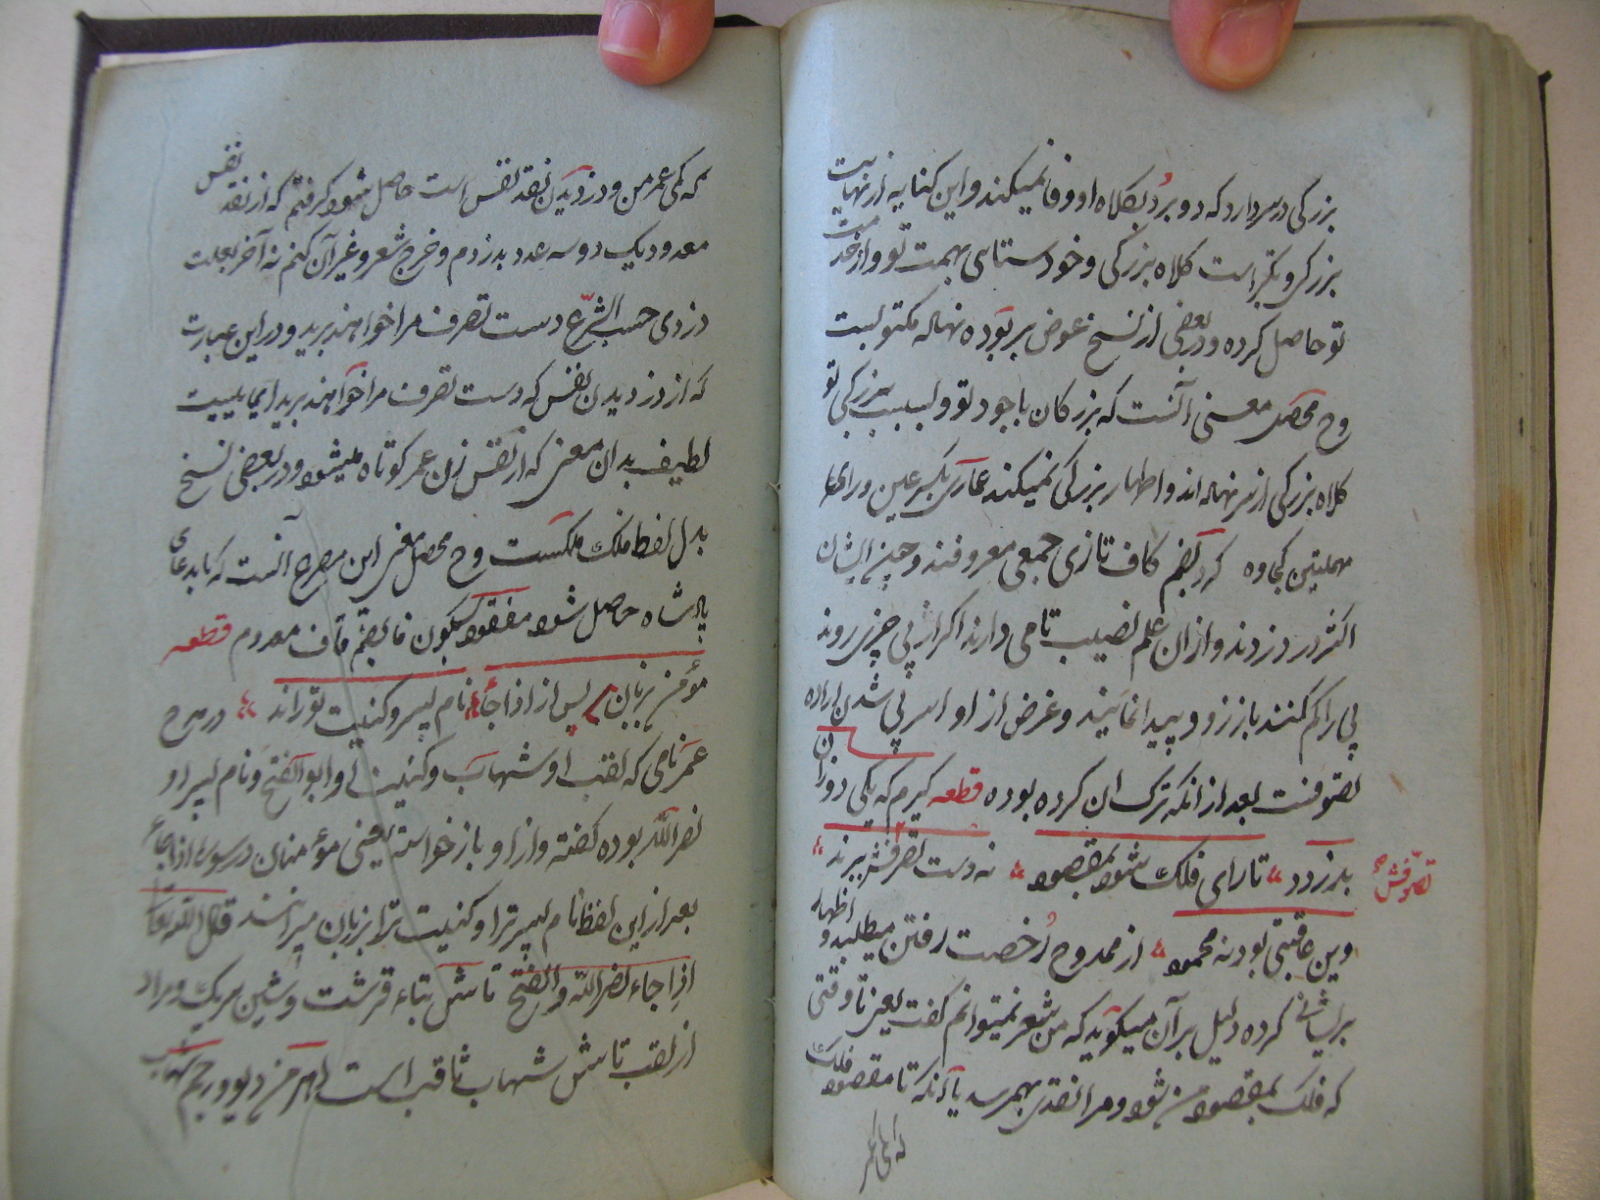 بزرگی در سر دارد که دو برد بکلاه او وفا نمیکند و این کنایه از نهایت
بزرگی و تکبر است کلاه بزرگی و خودستایی بهمت تو و از خدمت
تو حاصل کرده و در بعضی از نسخ عوض بر بوده نهاله مکتوبست
وح محصل معنی آنست که بزرکان با جود تو و بسبب بزرگی تو
کلاه بزرگی از سر نهاده اند و اظهار بزرگی نمیکند عماری بکسر عین و رای
مهملتین کجاوه کرد بضم کاف تازی جمعی معروفند و چنین ایشان
اکثر در دزدند و از ان علم نصیب تامی دارند اکر از پی چیزی روند
پی را کم کنند باز زود پیدا نمایند و غرض از او اسر پی شدن اراده
تصوفست بعد از انکه ترک ان کرده بوده قطعه کیرم که یکی دو زان
بدزدد تا رای فلک شود بمقصود نه دست تصرفش ببرند
تصرفش
وین عاقبتی بود نه محمود از ممدوح رخصت رفتن میطلبد و اظهار
پریشانی کرده دلیل بر آن میکوید که من شعر نمیتوانم کفت یعنی تا وقتی
که فلک بمقصود من شود و مرا نقدی بهمرسد یا آنکه تا مقصود فلک
که کمی عمر
که کمی عمر من و دزدیدن نقد نفس است حاصل شود کرفتم که از نقد نفس
معدود یک دو سه عدد بدزدم و خرج شعر و غیر آن کنم نه آخر بعلت
دزدی حسب الشرع دست تصرف مرا خواهند برید و در این عبارت
که از دزدیدن نفس که دست تصرف مرا خواهند برید ایماییست
لطیف بدان معنی که از نفس زدن عمر کوتاه میشود و در بعضی نسخ
بدل لفظ فلک ملکست وح محصل معنی این مصرع آنست که تا بدعای
پادشاه حاصل شود مفقود بسکون فا بضم قاف معدوم قطعه
مؤمن بزبان پس از اذا جاء نام پسر و کنیت تو راند در مدح
عمر نامی که لقب او شهاب و کنیت او ابو الفتح و نام پسر او
نصرالله بوده کفته و از او باز خواسته یعنی مؤمنان در سوره اذا جاء
بعد از این لفظ نام پسر ترا و کنیت ترا بزبان میرانند قال الله تعالی
اذا جاء نصرالله والفتح تاش بتاء قرشت و شین شریک و مراد
از لقب تاش شهاب ثاقب است اهرمن دیو و رجم شهاب